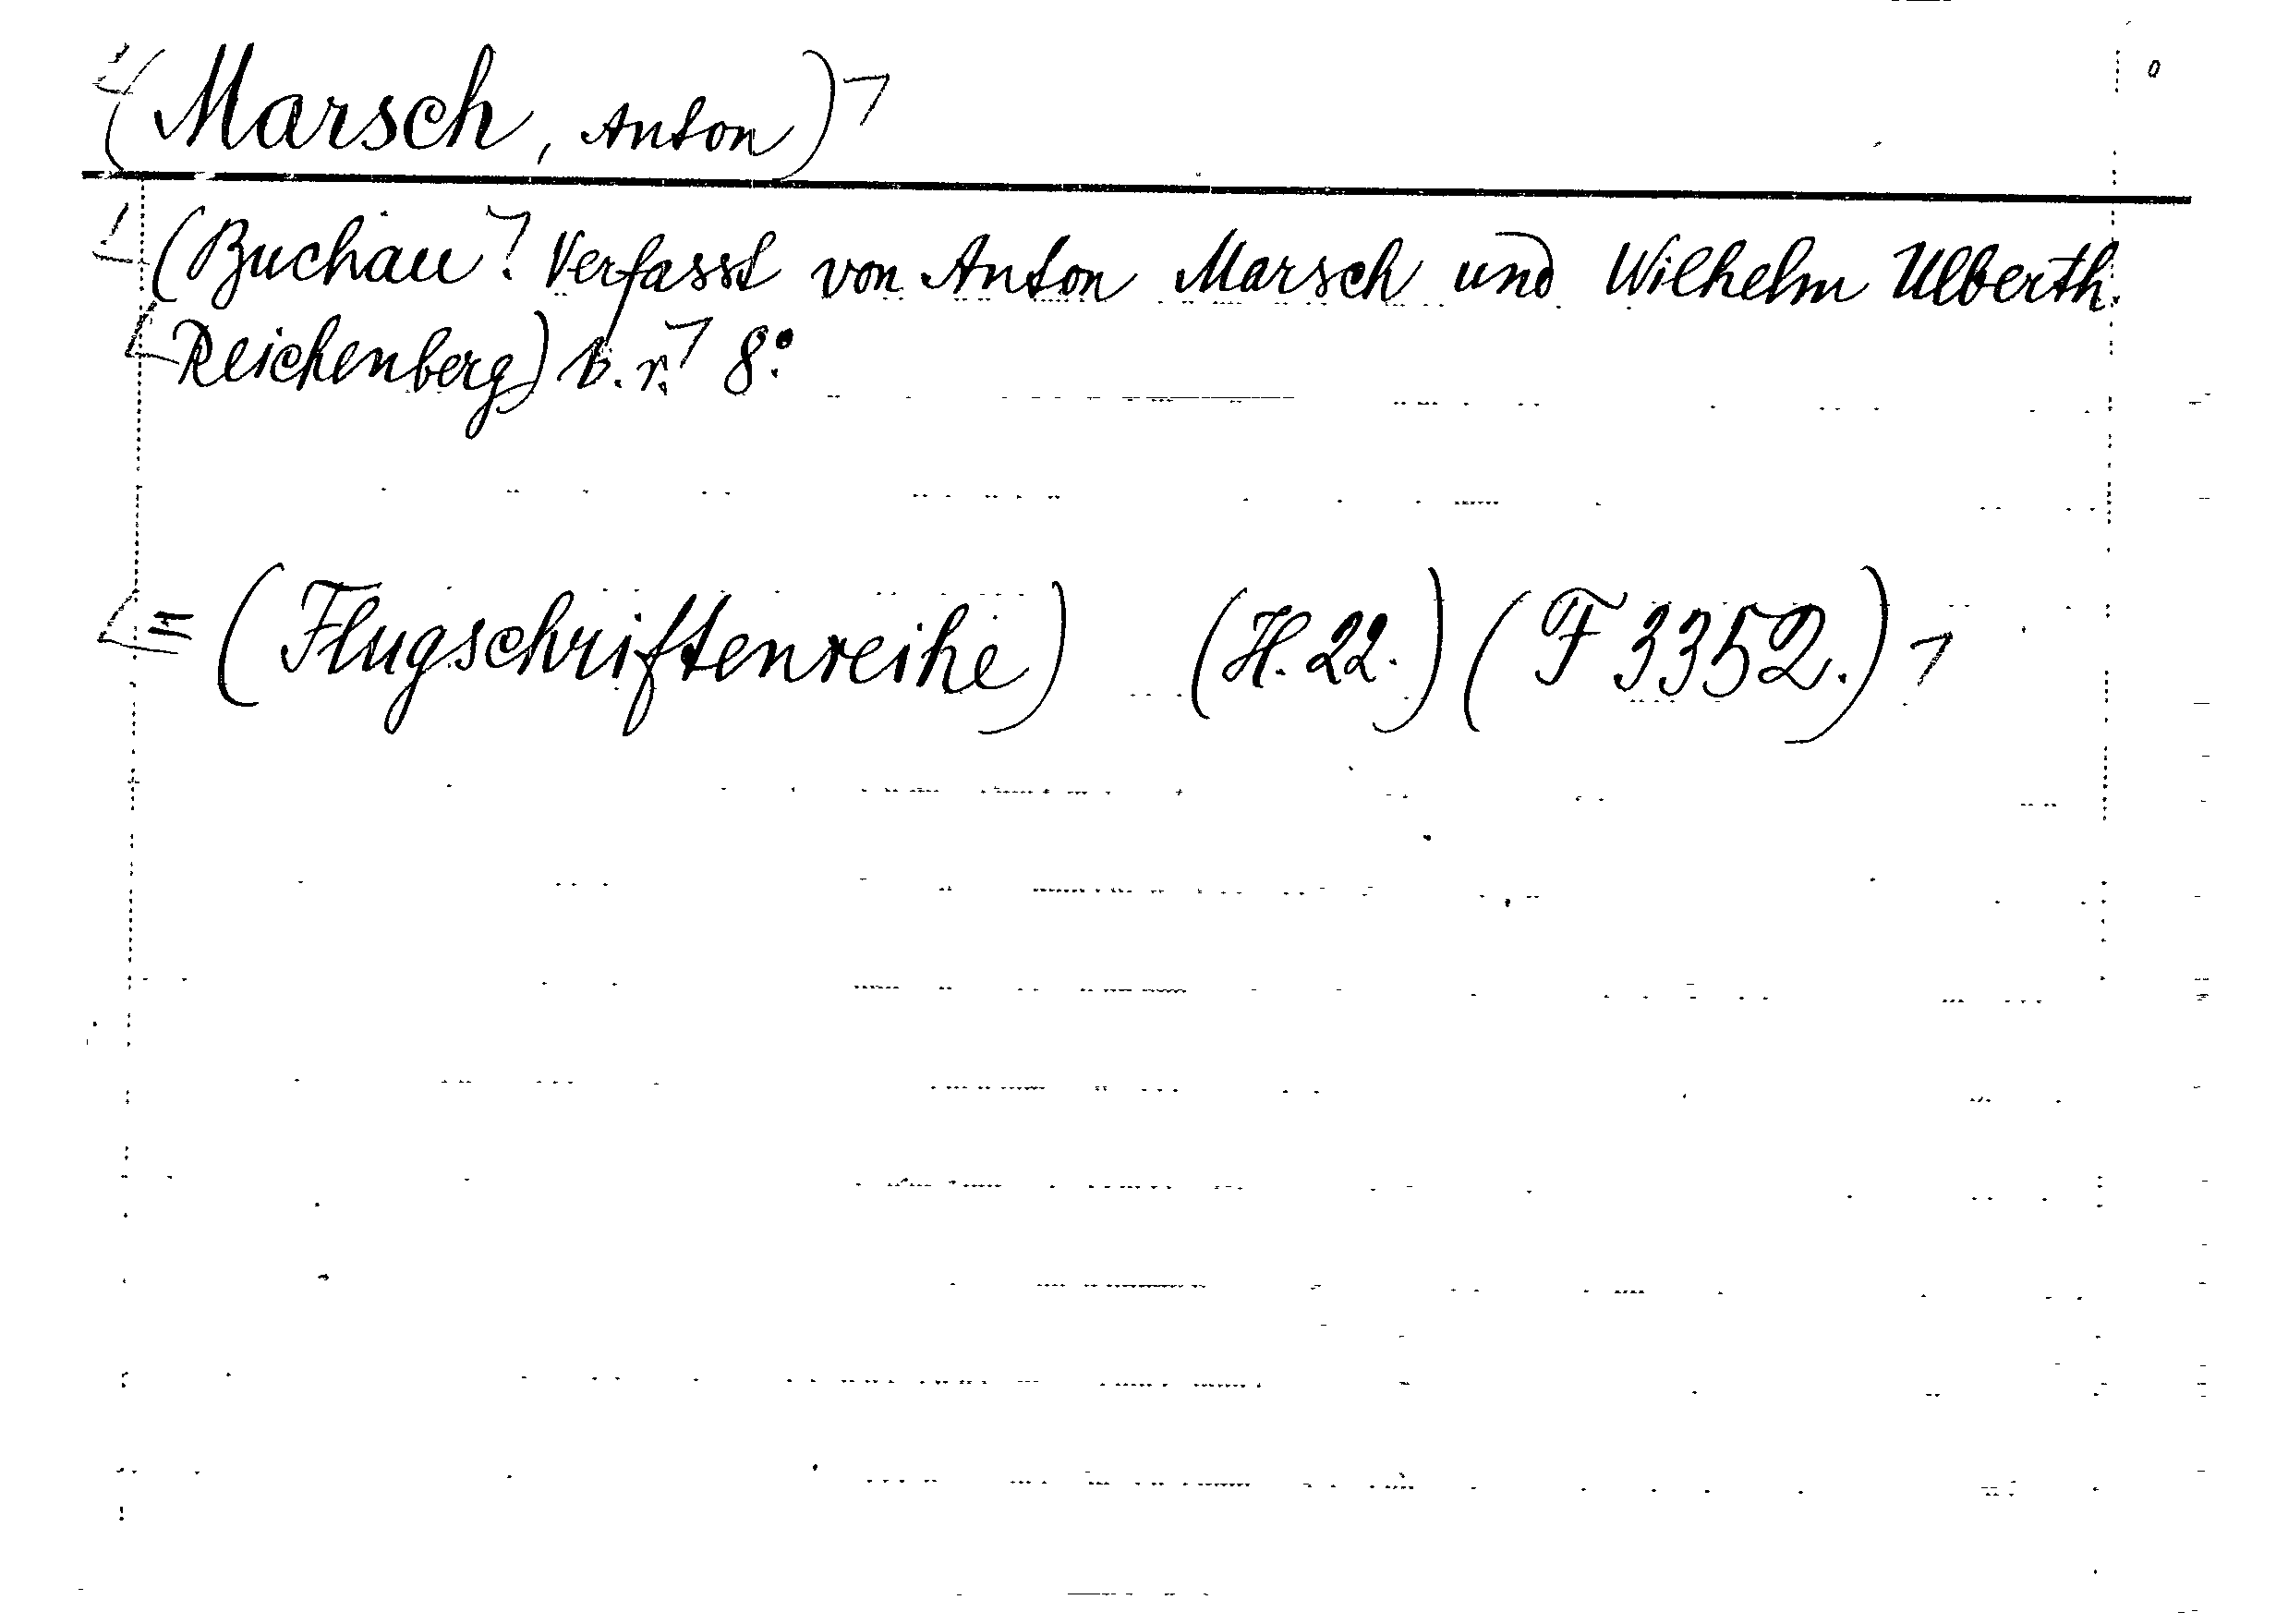 (Marsch, Anton)
(Buchau. Verfasst von Anton Marsch und Wilhelm Ulberth.
Reichenberg) b. r. 8°.
= (Flugschriftenreihe) (H. 22.) (F 3352.)